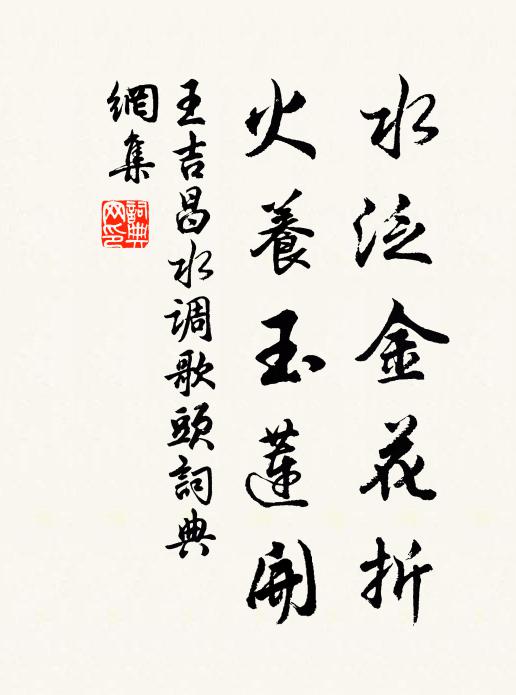 水泛金花折
火養玉蓮開
王吉昌水调歌頭詞典
網集
詞典网印